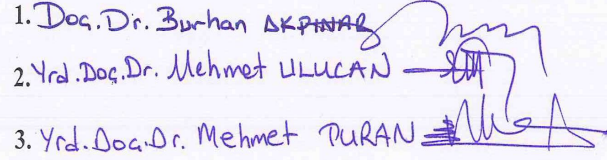 1. Doç. Dr. Burhan AKPINAR
2. Yrd. Doç. Dr. Mehmet ULUCAN
3. Yrd. Doç. Dr. Mehmet TURAN